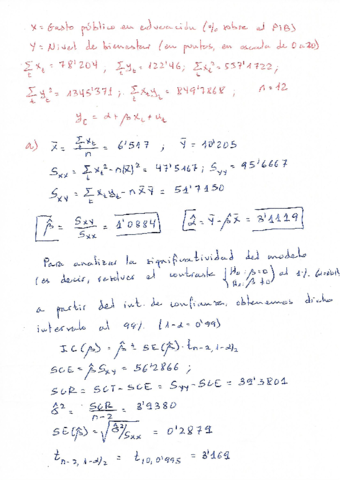 X = Gasto público en educación (% sobre el PIB)
Y = Nivel de bienestar (en puntos, en escala de 0 a 20)
Σ x_t = 78'204, Σ y_t = 122'46; Σ x_t² = 557'1722;
Σ y_t² = 1345'371; Σ x_t y_t = 849'7868; n = 12
y_t = α + β x_t + u_t
a) x̄ = Σ x_t / n = 6'517 ; ȳ = 10'205
S_xx = Σ x_t² - n(x̄)² = 47'5167; S_yy = 95'6667
S_xy = Σ x_t y_t - n x̄ ȳ = 51'7150
β̂ = S_xy / S_xx = 1'0884 α̂ = ȳ - β̂ x̄ = 3'1119
Para analizar la significatividad del modelo
(es decir, resolver el contraste { H₀: β=0 H₁: β≠0 ) al 1%
a partir del int. de confianza, obtenemos dicho
intervalo al 99% (1-α = 0'99)
I.C(β) = β̂ ± SE(β̂) · t_{n-2, 1-α/2}
SCE = β̂ S_xy = 56'2866 ;
SCR = SCT - SCE = S_yy - SCE = 39'3801
σ̂² = SCR / n-2 = 3'9380
SE(β̂) = √(σ̂²/S_xx) = 0'2879
t_{n-2, 1-α/2} = t_{10, 0'995} = 3'169